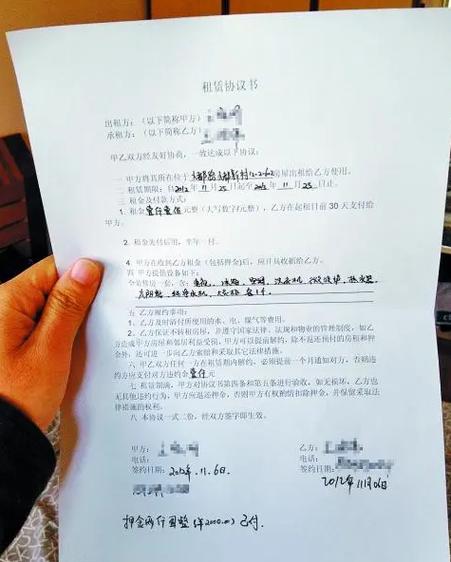 租赁协议书
出租方:(以下简称甲方)
承租方:(以下简称乙方)
甲乙双方经友好协商,一致达成以下协议:
一 甲方将其所在位于 12-2-602房屋出租给乙方使用。
二 租赁期限:自2012年11月25日起至201年11月25日止。
三 租金及付款方式:
1. 租金壹仟壹佰元整(大写数字/元整),乙方在起租日前30天支付给
甲方。
2. 租金先付后用,半年一付。
4. 甲方在收到乙方租金(包括押金)后,应开具收据给乙方。
四 甲方提供设备如下:
全装修房一套,含:电视、冰箱、空调、洗衣机、微波炉、热水器、
各1个.
五 乙方履约事项:
1. 乙方及时清付所使用的水、电、煤气等费用。
2. 乙方保证不转租房屋,并遵守国家法律、法规和物业的管理制度,如乙
方造成甲方房屋和邻居利益受损,甲方可以提前解约,除不退还预付的房租和押
金外,还可进一步向乙方索赔和采取其它法律措施。
六 甲乙双方任何一方在租赁期内解约,必须提前一个月通知对方,否则违
约方应支付对方违约金壹仟元
七 租赁期满,甲方对协议书第四条和第五条进行验收,如无损坏,乙方也
无其他违约行为,甲方应退还押金,否则甲方有权酌情扣除押金,并保留采取法
律措施的权利。
八 本协议一式二份,经双方签字即生效。
甲方:
电话:
签约日期:2012年.11.6日.
乙方:
电话:
签约日期:
2012年11月06日
押金两仟圆整(¥2000.00)已付.